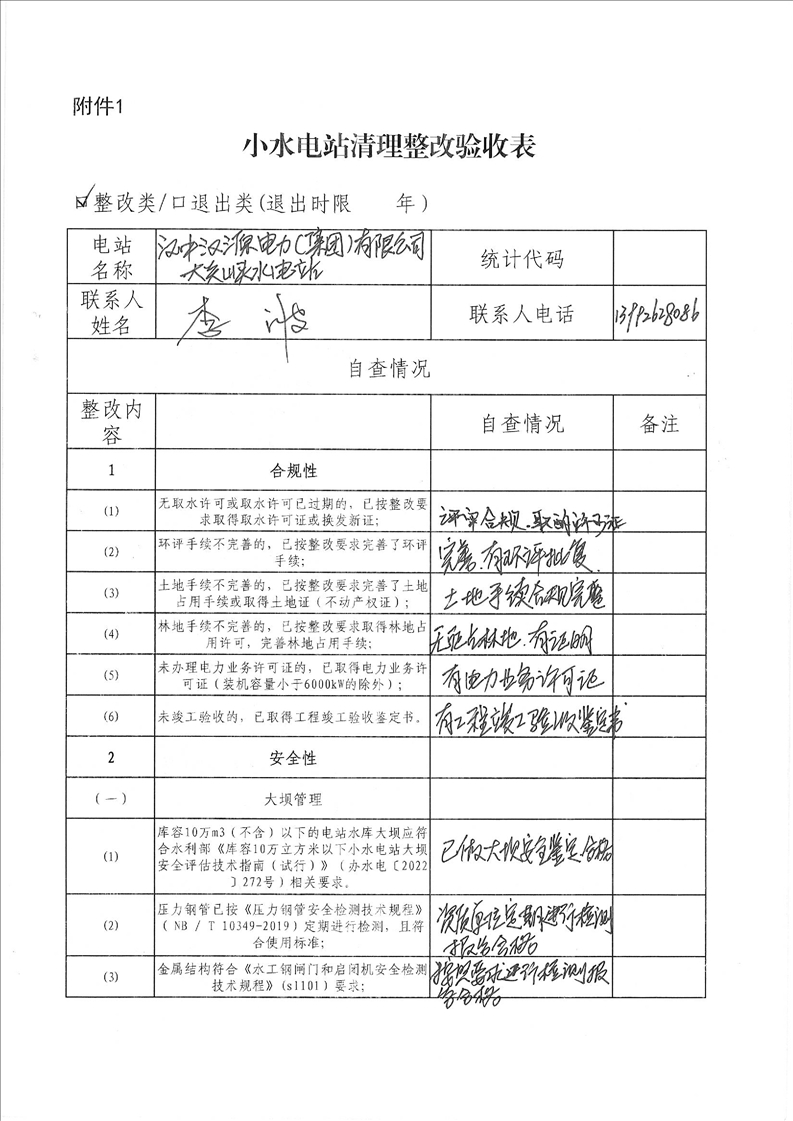 附件1
小水电站清理整改验收表
☑整改类/口退出类(退出时限 年)
电站
名称
汉中汉源电力(集团)有限公司
水电站
统计代码
联系人
姓名
李波
联系人电话
13992628086
自查情况
整改内
容
自查情况
备注
1
合规性
(1)
无取水许可或取水许可已过期的，已按整改要
求取得取水许可证或换发新证；
合规、取水许可证
(2)
环评手续不完善的，已按整改要求完善了环评
手续；
完善、有环评批复
(3)
土地手续不完善的，已按整改要求完善了土地
占用手续或取得土地证（不动产权证）；
土地手续合规完整
(4)
林地手续不完善的，已按整改要求取得林地占
用许可，完善林地占用手续；
占林地、有证明
(5)
未办理电力业务许可证的，已取得电力业务许
可证（装机容量小于6000kW的除外）；
有电力业务许可证
(6)
未竣工验收的，已取得工程竣工验收鉴定书。
有工程竣工验收鉴定书
2
安全性
(一)
大坝管理
(1)
库容10万m3（不含）以下的电站水库大坝应符
合水利部《库容10万立方米以下小水电站大坝
安全评估技术指南（试行）》（办水电〔2022
〕272号）相关要求。
已做大坝安全鉴定、合格
(2)
压力钢管已按《压力钢管安全检测技术规程》
（NB / T 10349-2019）定期进行检测，且符
合使用标准；
资质单位定期进行检测
报告合格
(3)
金属结构符合《水工钢闸门和启闭机安全检测
技术规程》(sl101)要求；
按照要求进行检测报
告合格